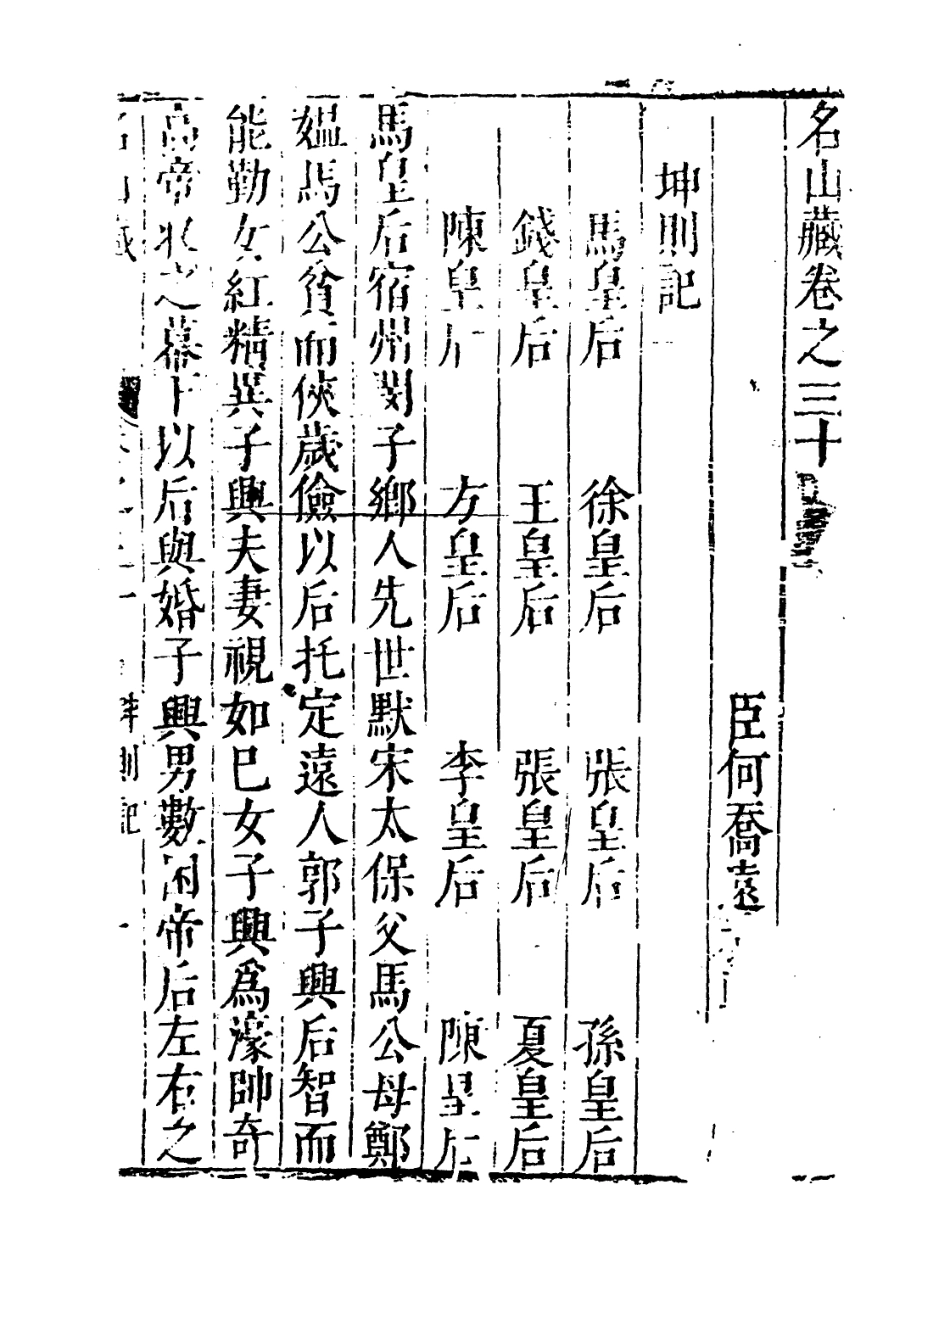 名山藏卷之三十
臣何喬遠
坤則記
馬皇后 徐皇后 張皇后 孫皇后
錢皇后 王皇后 張皇后 夏皇后
陳皇后 方皇后 李皇后 陳皇后
馬皇后宿州閔子鄉人先世默宋太保父馬公母鄭
媼馬公貧而俠歲儉以后托定遠人郭子興后智而
能勤女紅精異子興夫妻視如巳女子興爲濠帥奇
高帝收之幕下以后與婚子興男數困帝后左右之
名山藏 坤則記 一